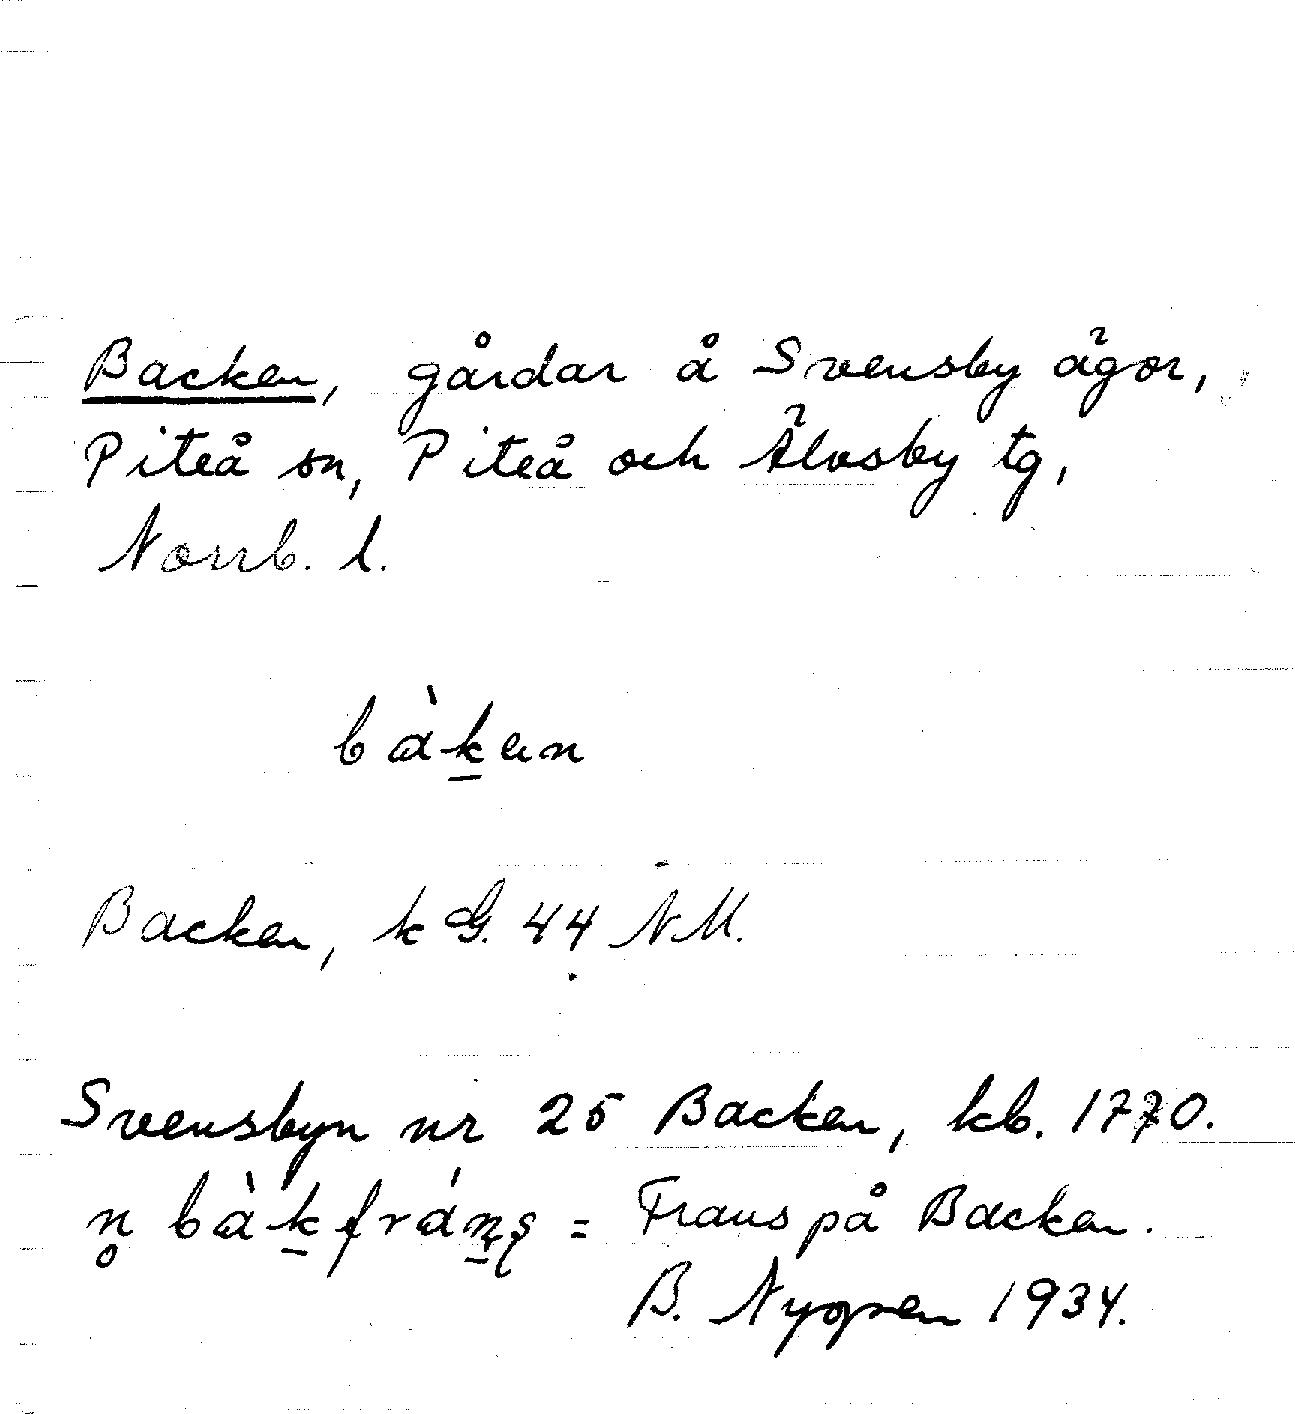 Backen, gårdar å Svensby ägor,
Piteå sn, Piteå och Älvsby tg,
Norrb. l.
bàk̲en
Backen, k G. 44 NM.
Svensbyn nr 25 Backen, kb. 1770.
n̥ bàk̲fráṉs = Frans på Backen.
B. Nygren 1934.